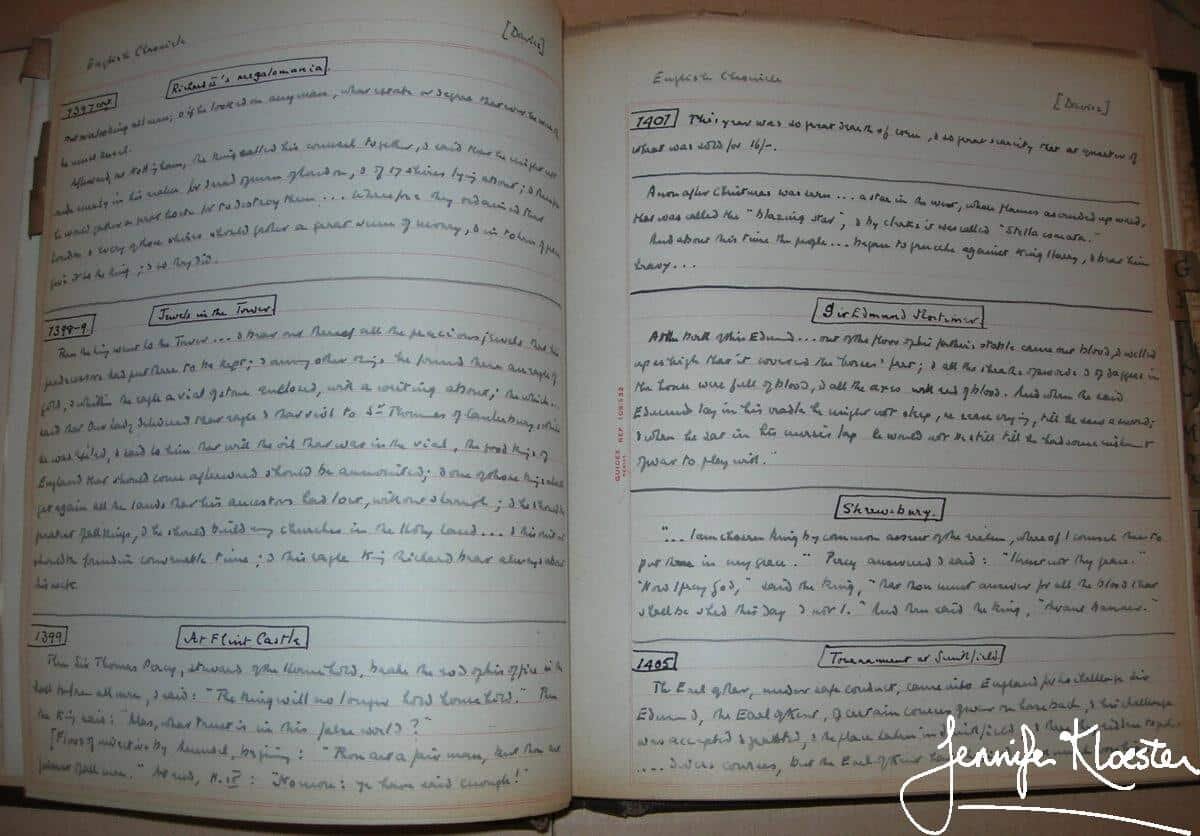 English Chronicle [Davies]
Richard II's megalomania
1397
he must kneel.
Afterward, at Nottingham, the King called his counsel together, & said that he might not
ride surely in his realm for dread of men of London, & of 17 shires lying about; &
he would gather a great host for to destroy them... Wherefore they ordained that
London & every of those shires should gather a great sum of money, & in token of peace
give it to the King; & so they did.
1398-9 Jewels in the Tower
Then the King went to the Tower... & bear out thereof all the precious jewels that his
predecessors had put there to be kept; & among other things he found there an eagle of
gold, & within the eagle a vial of stone enclosed, with a writing about; the which...
said that Our Lady delivered that eagle & that vial to St Thomas of Canterbury, while
he was exiled, & said to him that with the oil that was in the vial, the good Kings of
England that should come afterward should be annointed; & one of those Kings shall
get again all the lands that his ancestors had lost, without strength; & he should be
greatest of all Kings, & he should build many churches in the Holy Land... & this vial
should be found in convenable time; & this eagle King Richard bear always about
his neck.
1399 At Flint Castle
Then Sir Thomas Percy, steward of the Household, brake the rod of his office in the
hall before all men, & said: "The King will no longer hold household." Then
the King said: "Alas, what trust is in this false world?"
[Flood of invective by himself, beginning: "Thou art a fair man, but thou art
falsest of all men." At end, H.IV: "No more: ye have said enough!"
English Chronicle
[Davies]
1401 This year was so great dearth of corn, & so great scarcity that a quarter of
wheat was sold for 16/-.
Anon after Christmas was seen... a star in the west, whose flames ascended upward,
that was called the "blazing star", & by clerks it was called "Stella comata."
And about this time the people... began to grucche against King Harry, & bear him
heavy...
Sir Edmund Mortimer
At the birth of this Edmund... out of the floor of his father's stable came out blood, & welled
up so high that it covered the horses' feet; & all the sheaths of swords & of daggers in
the house were full of blood, & all the axes with red of blood. And when the said
Edmund lay in his cradle he might not sleep, ne cease crying, till he saw a sword;
& when he sat in his nurse's lap he would not be still till he had some instrument
of war to play with."
Shrewsbury.
"... I am chosen King by common assent of the realm, wherefore I counsel thee to
put thee in my grace." Percy answered & said: "I trust not thy grace."
"Now I pray God," said the King, "that thou must answer for all the blood that
shall be shed this day & not I." And then said the King, "Avant banner."
1405 Tournament at Smithfield
The Earl of Mar, under safe conduct, came into England for to challenge Sir
Edmund, the Earl of Kent, of certain courses of war on horseback, & his challenge
was accepted & granted, & the place taken in Smithfield,
.... courses, but the Earl of Kent
GUIDEX REF. 109/532
Jennifer Kloester